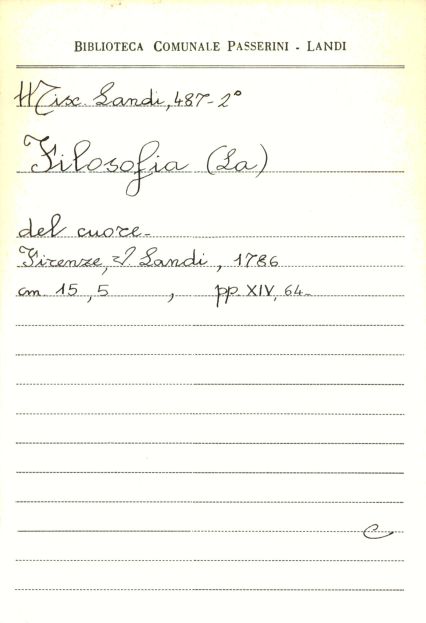 BIBLIOTECA COMUNALE PASSERINI - LANDI
Misc. Landi, 487-2°
Filosofia (La)
del cuore-
Firenze, Landi, 1786
cm 15,5 , pp. XIV, 64-
C